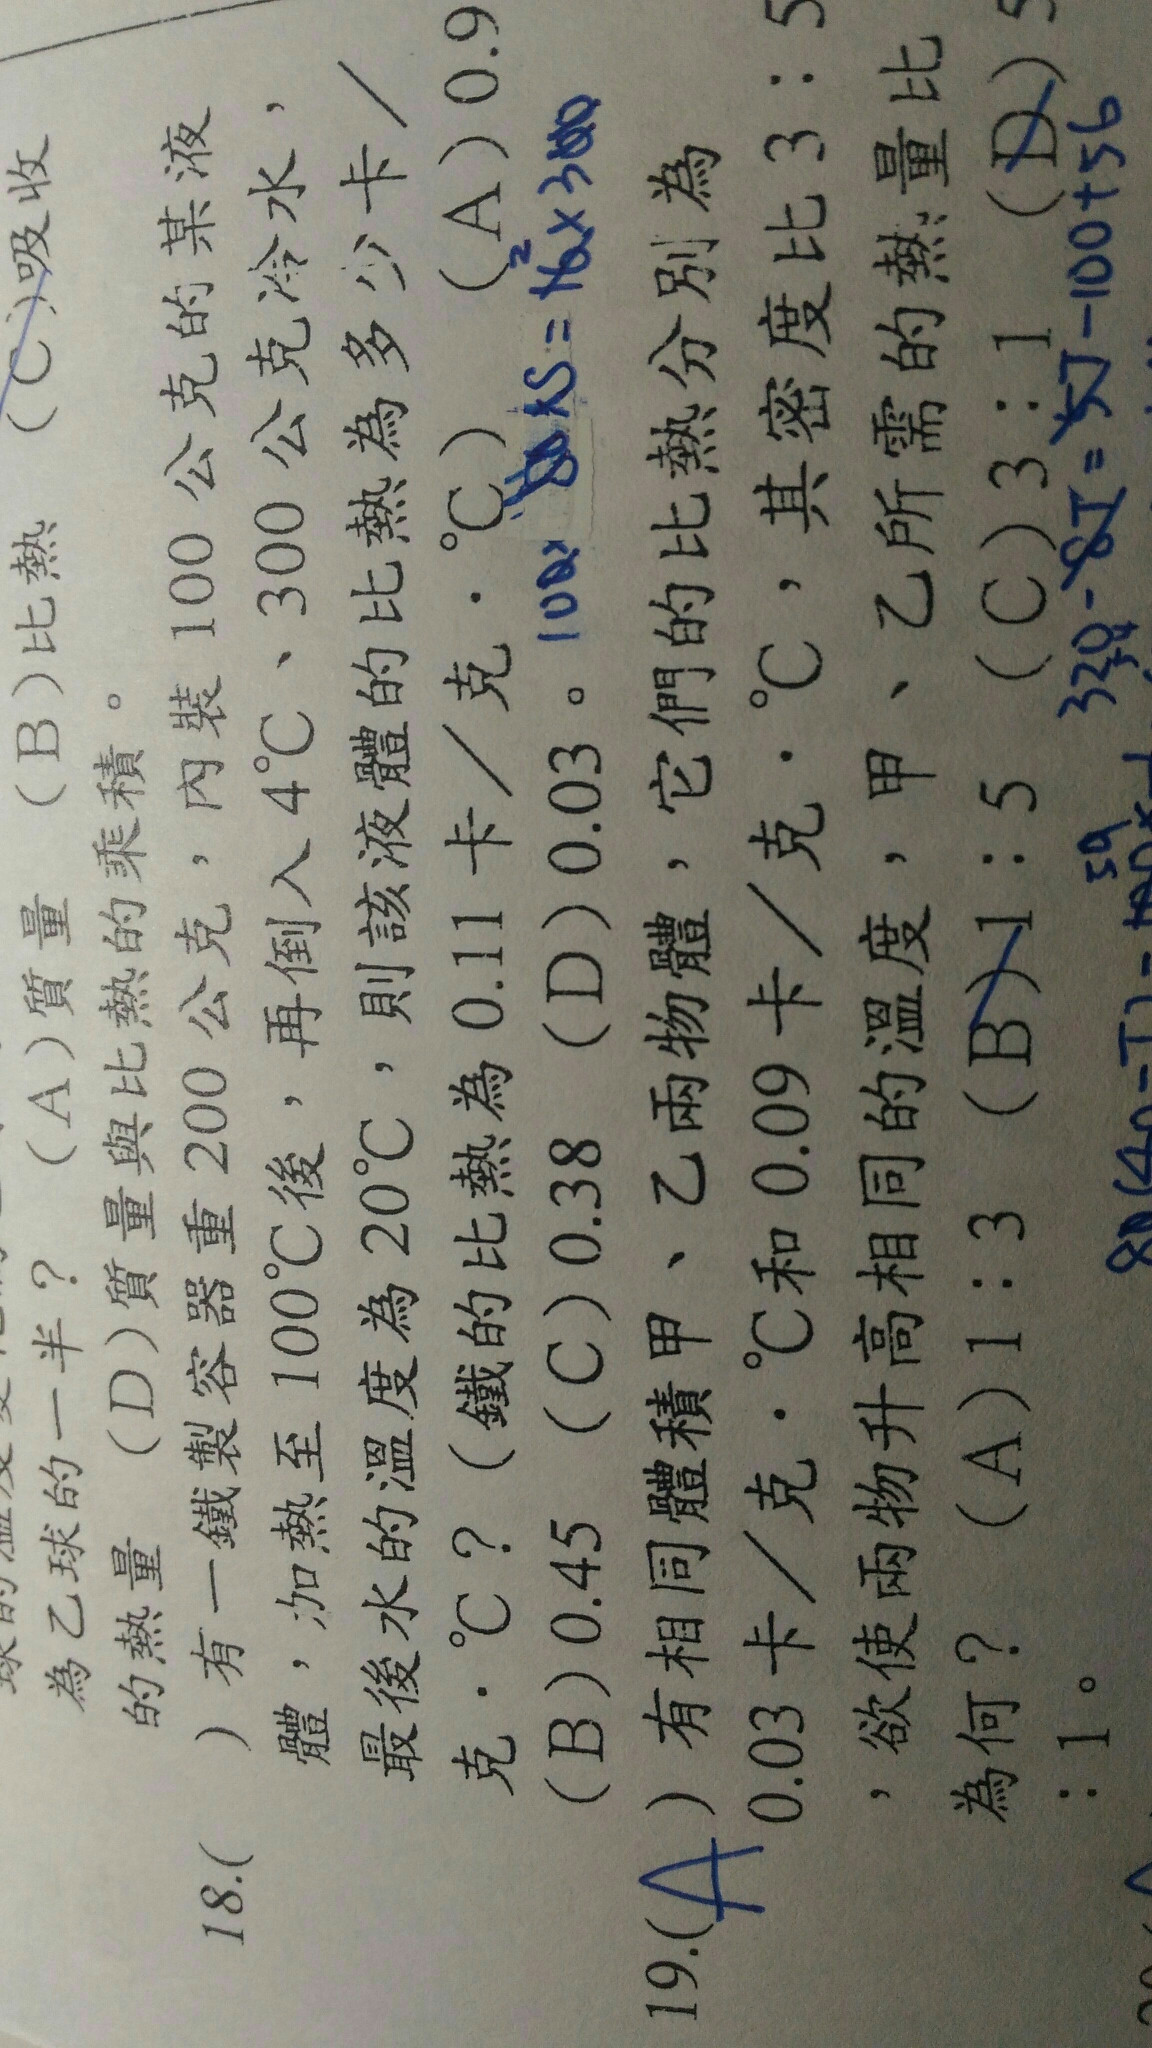 為乙球的一半？ (A)質量 (B)比熱 (C)吸收
的熱量 (D)質量與比熱的乘積。
18.( ) 有一鐵製容器重 200 公克，內裝 100 公克的某液
體，加熱至 100℃後，再倒入 4℃、300 公克冷水，
最後水的溫度為 20℃，則該液體的比熱為多少卡／
克．℃？（鐵的比熱為 0.11 卡／克．℃） (A) 0.9
(B) 0.45 (C) 0.38 (D) 0.03。
19.(A) 有相同體積甲、乙兩物體，它們的比熱分別為
0.03 卡／克．℃和 0.09 卡／克．℃，其密度比 3：5
，欲使兩物升高相同的溫度，甲、乙所需的熱量比
為何？ (A) 1：3 (B) 1：5 (C) 3：1 (D) 5
：1。